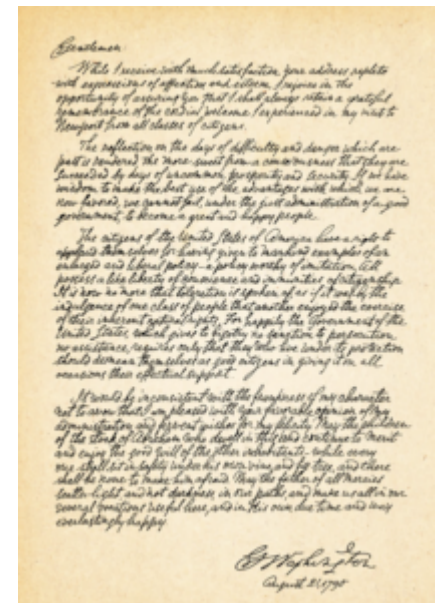 Gentlemen:
While I receive with much satisfaction, your address replete
with expressions of affection and esteem, I rejoice in the
opportunity of assuring you that I shall always retain a grateful
remembrance of the cordial welcome I experienced in my visit to
Newport from all classes of citizens.
The reflection on the days of difficulty and danger which are
past is rendered the more sweet from a consciousness that they are
succeeded by days of uncommon prosperity and security. If we have
wisdom to make the best use of the advantages with which we are
now favored, we cannot fail, under the just administration of a good
government, to become a great and happy people.
The citizens of the United States of America have a right to
applaud themselves for having given to mankind examples of an
enlarged and liberal policy—a policy worthy of imitation. All
possess a like liberty of conscience and immunities of citizenship.
It is now no more that toleration is spoken of as if it was by the
indulgence of one class of people that another enjoyed the exercise
of their inherent natural rights. For happily the Government of the
United States, which gives to bigotry no sanction, to persecution
no assistance, requires only that they who live under its protection
should demean themselves as good citizens in giving it on all
occasions their effectual support.
It would be inconsistent with the frankness of my character
not to avow that I am pleased with your favorable opinion of my
administration and fervent wishes for my felicity. May the children
of the stock of Abraham who dwell in this land continue to merit
and enjoy the good will of the other inhabitants—while every
one shall sit in safety under his own vine and fig tree, and there
shall be none to make him afraid. May the father of all mercies
scatter light and not darkness, in our paths, and make us all in our
several vocations useful here, and in His own due time and way
everlastingly happy.
G Washington
August 21, 1790